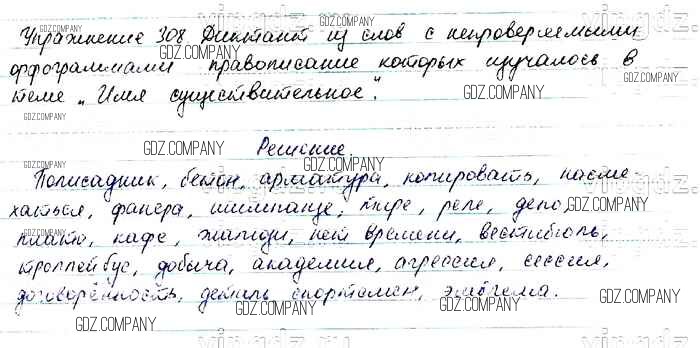 Упражнение 308 Диктант из слов с непроверяемыми
орфограммами правописание которых изучалось в
теме "Имя существительное".
Решение.
Полисадник, бетон, арматура, копировать, насме-
хаться, фанера, шимпанзе, тире, реле, депо,
пальто, кафе, жалюзи, нет времени, вестибюль,
троллейбус, добыча, академия, агрессия, сессия,
договорённость, деталь спортсмен, эмблема.
GDZ.COMPANY
vipgdz.ru